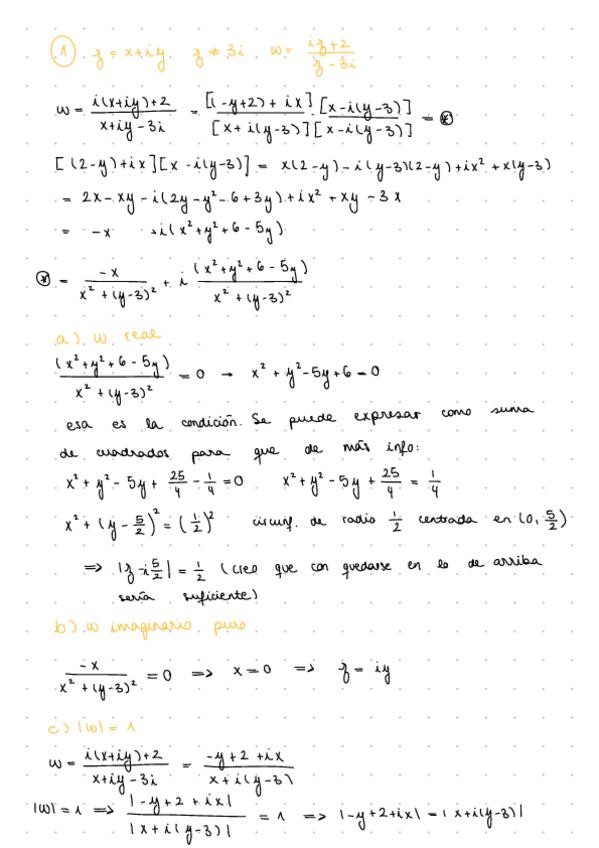 1. z = x+iy. z ≠ 3i w = (iz+2)/(z-3i)
w = (i(x+iy)+2)/(x+iy-3i) = ([(-y+2)+ix][x-i(y-3)])/([x+i(y-3)][x-i(y-3)]) = ⊛
[(2-y)+ix][x-i(y-3)] = x(2-y)-i(y-3)(2-y)+ix²+x(y-3)
= 2x-xy-i(2y-y²-6+3y)+ix²+xy-3x
= -x +i(x²+y²+6-5y)
⊛ = -x/(x²+(y-3)²) + i (x²+y²+6-5y)/(x²+(y-3)²)
a). w real
(x²+y²+6-5y)/(x²+(y-3)²) = 0 → x²+y²-5y+6=0
esa es la condición. Se puede expresar como suma
de cuadrados para que de más info:
x²+y²-5y+25/4-1/4=0 x²+y²-5y+25/4=1/4
x²+(y-5/2)²=(1/2)² circunf. de radio 1/2 centrada en (0,5/2)
⇒ |z-i5/2|=1/2 (creo que con quedarse en lo de arriba
sería suficiente)
b). w imaginario puro
-x/(x²+(y-3)²) = 0 ⇒ x=0 ⇒ z=iy
c) |w|=1
w = (i(x+iy)+2)/(x+iy-3i) = (-y+2+ix)/(x+i(y-3))
|w|=1 ⇒ |-y+2+ix|/|x+i(y-3)| = 1 ⇒ |-y+2+ix|=|x+i(y-3)|